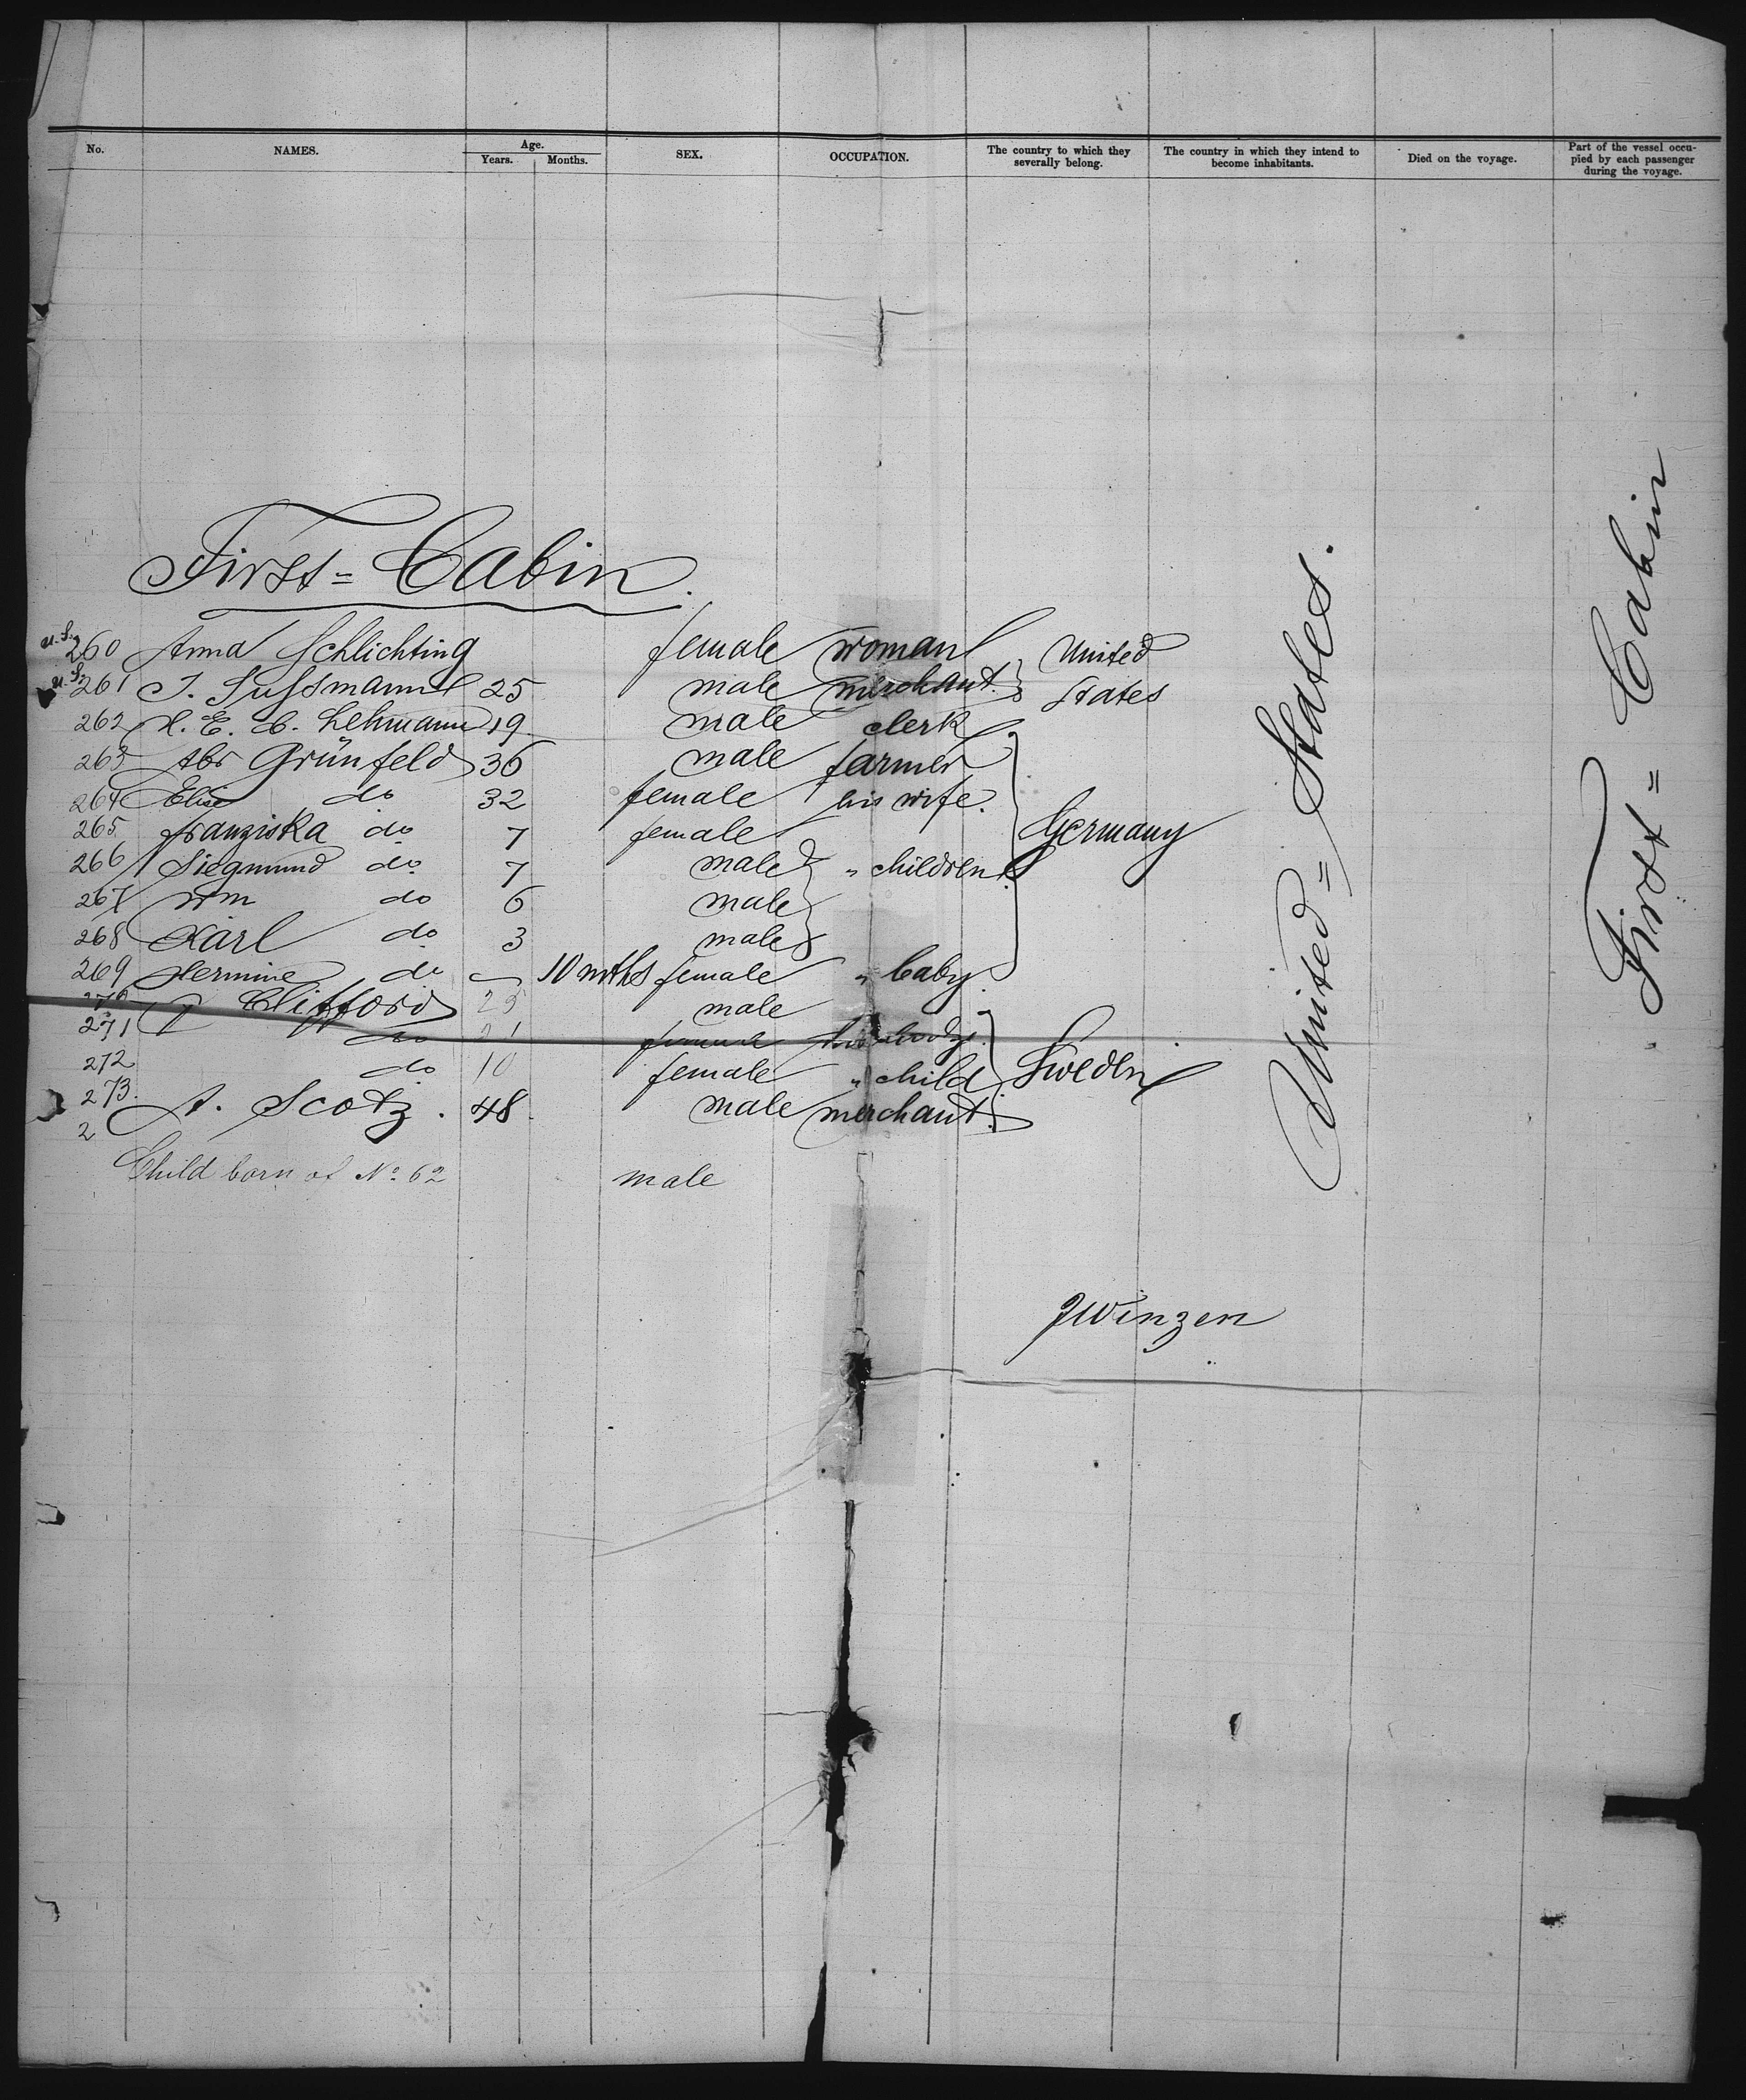 No. NAMES. Age. Years. Months. SEX. OCCUPATION. The country to which they severally belong. The country in which they intend to become inhabitants. Died on the voyage. Part of the vessel occupied by each passenger during the voyage.
First = Cabin.
U.S. 260 Anna Schlichting female woman United
U.S. 261 J. Sussmann 25 male merchant. States
262 E. C. Lehmann 19 male clerk
263 Abr Grünfeld 36 male farmer
264 Elise do 32 female his wife.
265 Franziska do 7 female Germany
266 Siegmund do 7 male " children
267 Wm do 6 male
268 Karl do 3 male
269 Hermine do 10 mths female " baby.
270 Clifford 25 male
271 do 21 female
272 do 10 female " child Sweden
273. A. Scotz. 48. male merchant.
2
Child born of No. 62 male
JWinzen
United = States.
First = Cabin